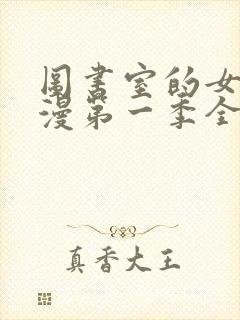 圖書室的女
漫第一季全
真香大王